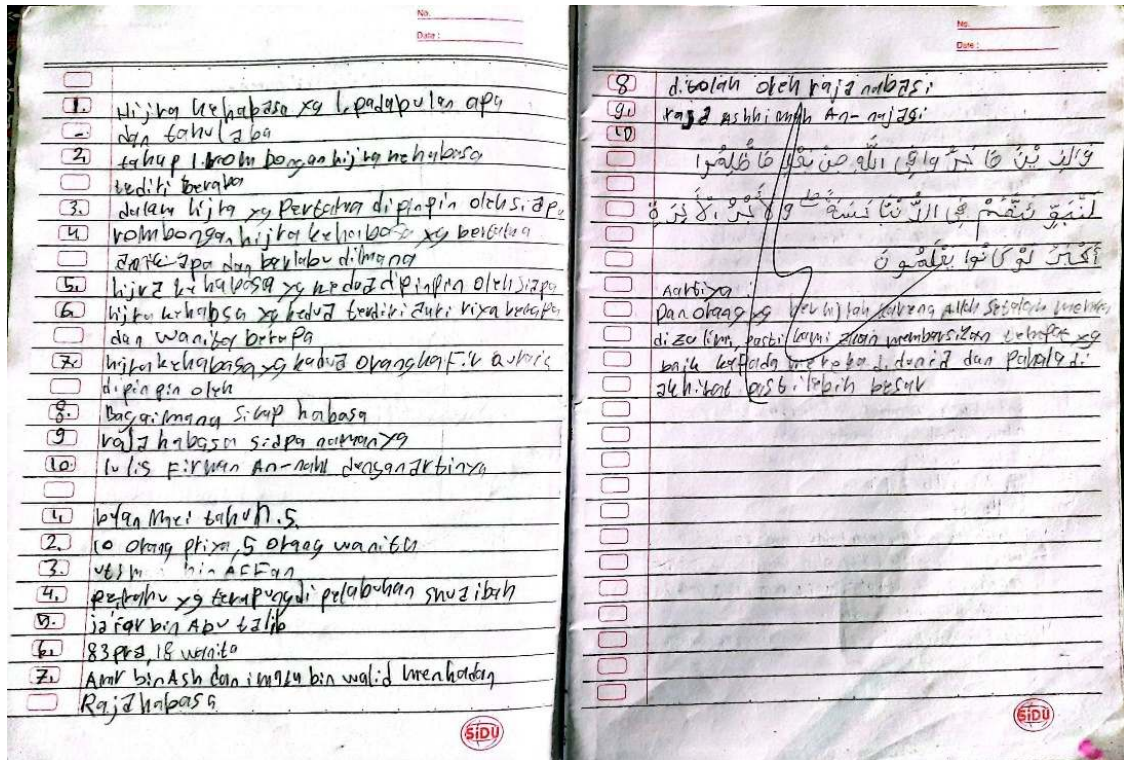 No.
Date :
1. Hijra kehabasa yg 1. padabulan apa
dan tahul aba
2. tahap 1. rombongan hijra kehabasa
tediri beraba
3. dalam hijra yg Pertama dipinpin oleh siapa
4 rombongan hijra kehabasa yg bertama
apa dan berlabu dimana
5. hijra kehabasa yg kedua dipinpin oleh siapa
6. hijra kehabsa yg kedua terdiri dari berapa
dan wanita berapa
7. hijra kehabasa yg kedua orang kafir
dipinpin oleh
8. Bagaimana sikap habasa
9 raja habasa siapa namanya
10. tulis Firman An-nahl dengan artinya
1, Mei tahun .5.
2. 10 orang priya, 5 orang wanita
3. bin AFFan
4. perahu yg terapung di pelabuhan shuaibah
5. ja'far bin Abu talib
6. 83 pria, 18 wanita
7. Amr bin Ash dan bin walid menhadap
Raja habasa
SiDU
No.
Date :
8 ditolah oleh raja
9. raja Ashhimah An-najasi
10
فِى اللّٰهِ مِنْ بَعْدِ مَا ظُلِمُوا
فِى
أَكْبَرُ لَوْ كَانُوا يَعْلَمُونَ
Aartiya :
Dan oraang yg berhijrah karena Allah Setalah mereka
dizolim, pasti kami akan yg
baik kepada mereka di dan Pahala di
akhirat pasti lebih besar
SiDU